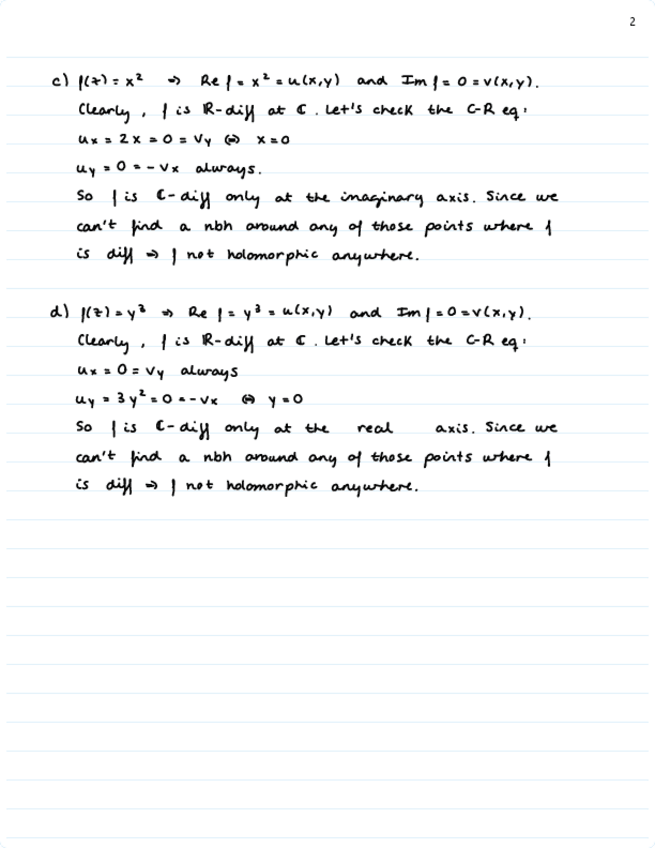 2
c) f(z) = x² ⇒ Re f = x² = u(x,y) and Im f = 0 = v(x,y).
Clearly, f is R-diff at ℂ. Let's check the C-R eq:
ux = 2x = 0 = vy ⇔ x=0
uy = 0 = -vx always.
So f is ℂ-diff only at the imaginary axis. Since we
can't find a nbh around any of those points where f
is diff ⇒ f not holomorphic anywhere.
d) f(z) = y³ ⇒ Re f = y³ = u(x,y) and Im f = 0 = v(x,y).
Clearly, f is R-diff at ℂ. Let's check the C-R eq:
ux = 0 = vy always
uy = 3y² = 0 = -vx ⇔ y=0
So f is ℂ-diff only at the real axis. Since we
can't find a nbh around any of those points where f
is diff ⇒ f not holomorphic anywhere.